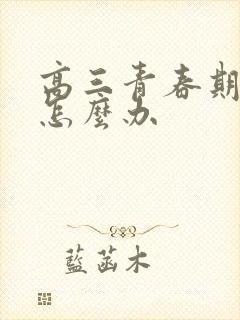 高三青春期
怎麼办
藍菡木